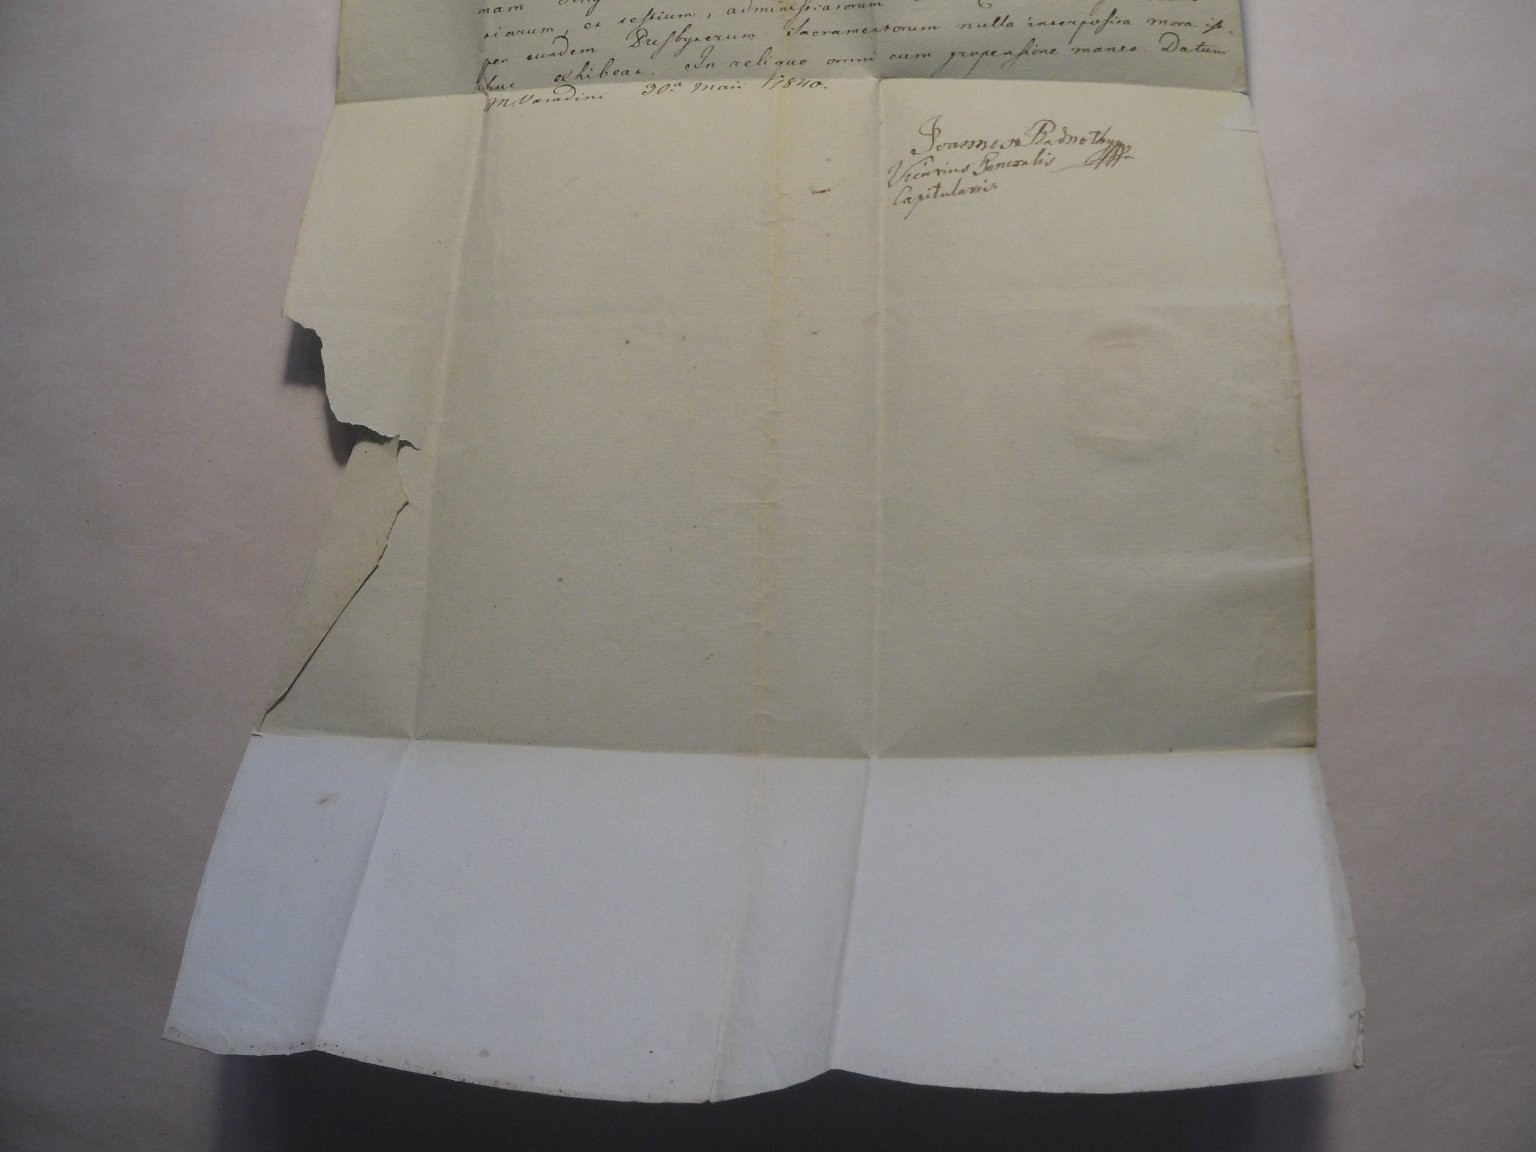 mam
riarum, et testium, administratorum
per eundem Presbyterum Sacramentorum nulla interposita mora ist-
huc exhibeat. In reliquo omni cum propensione maneo. Datum
M. Varadini 30.a Maii 1840.
Joannes Radnothy
Vicarius Generalis
Capitularis